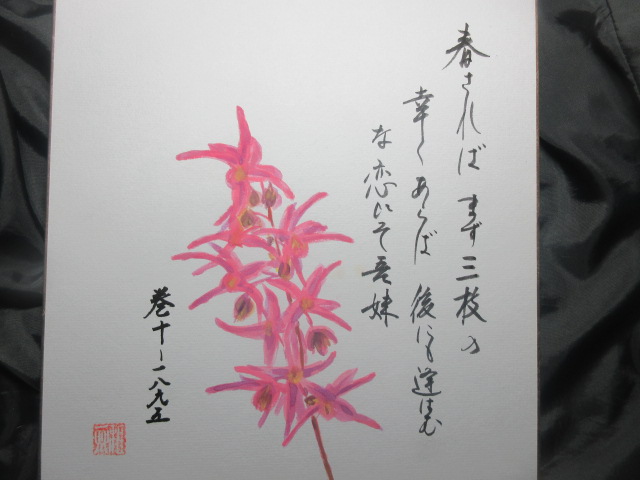 春されば まず三枝の
幸くあらば 後にも逢はむ
な恋ひそ吾妹
巻十ー一八九五